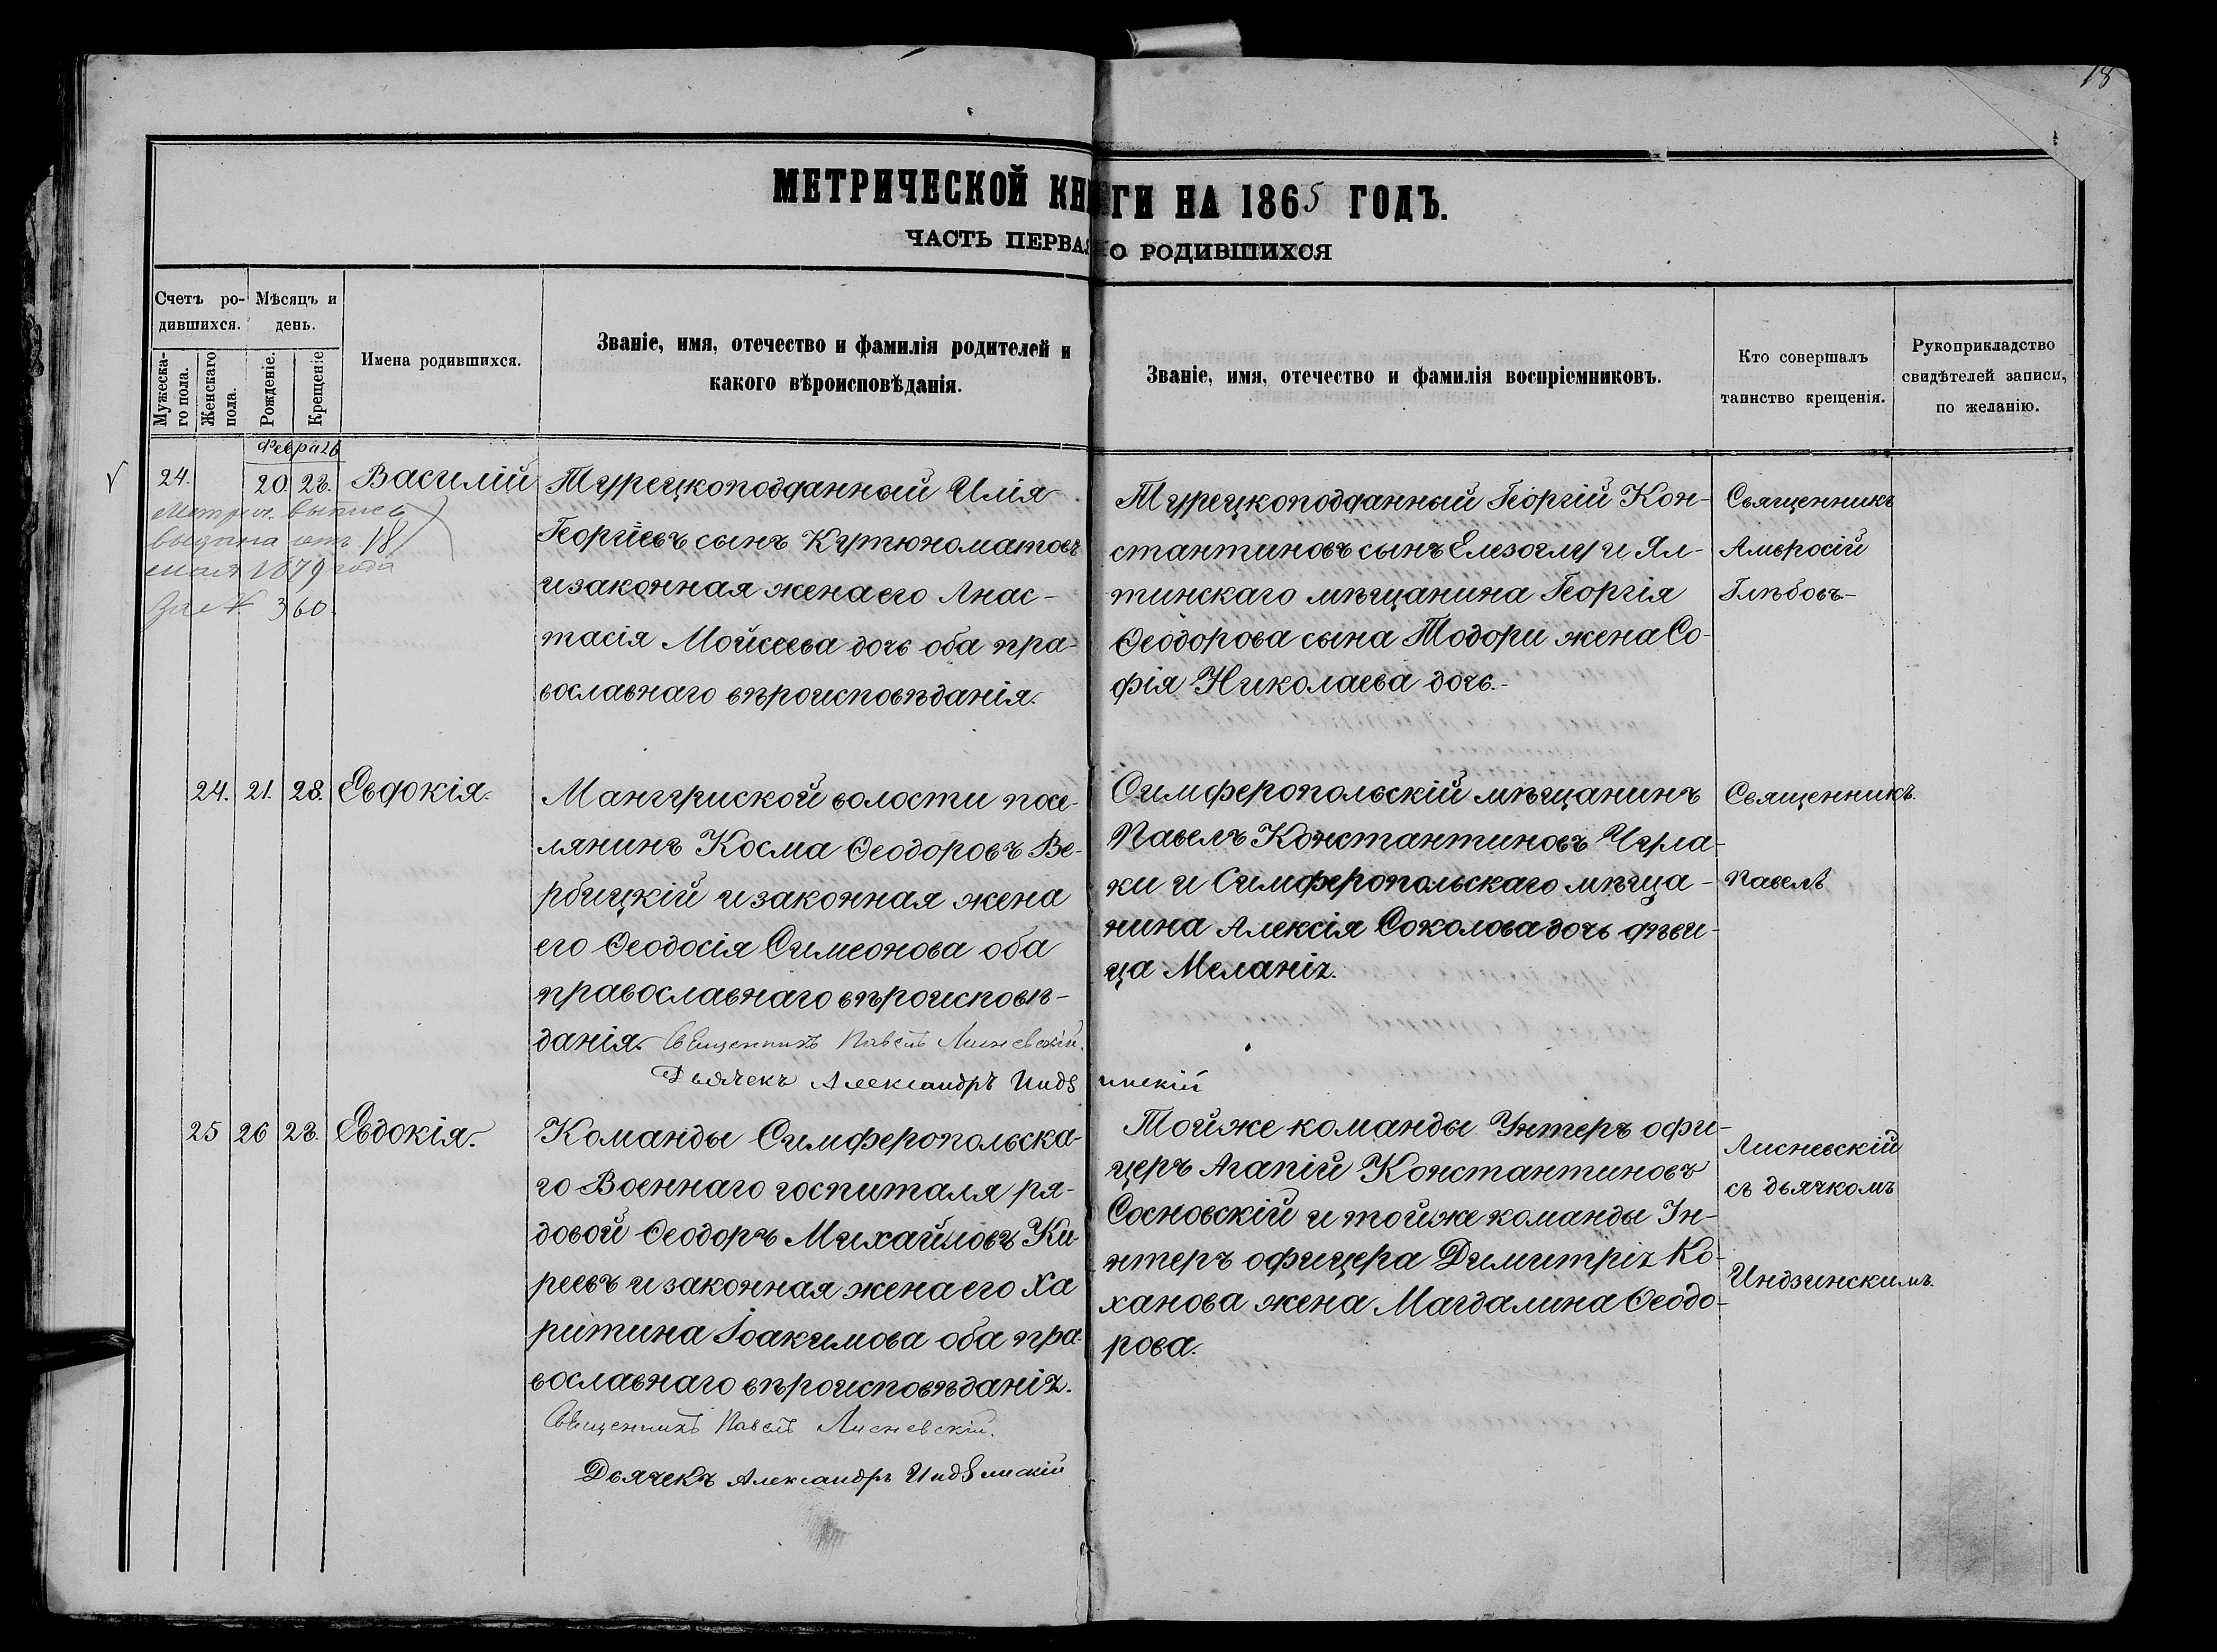 18
МЕТРИЧЕСКОЙ КНИГИ НА 1865 ГОДЪ.
ЧАСТЬ ПЕРВАЯ О РОДИВШИХСЯ
Счетъ ро-
дившихся.
Мѣсяцъ и
день.
Мужеска-
го пола.
Женскаго
пола.
Рожденіе.
Крещеніе
Имена родившихся.
Званіе, имя, отечество и фамилія родителей и
какого вѣроисповѣданія.
Званіе, имя, отечество и фамилія воспріемниковъ.
Кто совершалъ
таинство крещенія.
Рукоприкладство
свидѣтелей записи,
по желанію.
Февраль
24. 20 28. Василій
Метрич. выпись
выдана отъ 18
мая 1879 года
за № 360.
Турецкоподданный Илія
Георгіевъ сынъ Кутюноматовъ
и законная жена его Анас-
тасія Мойсеева дочь оба пра-
вославнаго вѣроисповѣданія.
Турецкоподданный Георгій Кон-
стантиновъ сынъ Елезоглу и Ял-
тинскаго мѣщанина Георгія
Ѳеодорова сына Тодори жена Со-
фія Николаева дочь.-
Священникъ
Амвросій
Глѣбовъ.-
24. 21. 28. Евдокія.
Мангушской волости посе-
лянинъ Косма Ѳеодоровъ Ве-
рбицкій и законная жена
его Ѳеодосія Симеонова оба
православнаго вѣроисповѣ-
данія. Священникъ Павелъ Лисневскій.
Дьячекъ Александръ Индзинскій
Симферопольскій мѣщанинъ
Павелъ Константиновъ Чула-
ки и Симферопольскаго мѣща-
нина Алексія Соколова дочь дѣви-
ца Меланія.
Священникъ.
Павелъ
25 26 28. Евдокія.
Команды Симферопольска-
го Военнаго госпиталя ря-
довой Ѳеодоръ Михайловъ Ки-
реевъ и законная жена его Ха
ритина Іоакимова оба пра-
вославнаго вѣроисповѣданія.
Священникъ Павелъ Лисневскій.
Дьячекъ Александръ Индзинскій
Тойже команды Унтеръ офи-
церъ Агапій Константиновъ
Сосновскій и тойже команды Ун-
нтеръ офицера Димитрія Ко-
ханова жена Магдалина Ѳеодо-
рова.
Лисневскій
съ дьячкомъ
Индзинскимъ.